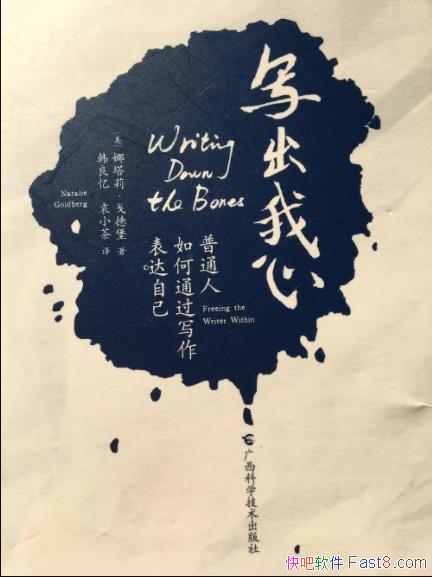 写出我心
Writing
Down
the Bones
[美]娜塔莉·戈德堡 著
韩良忆 袁小茶 译
Natalie
Goldberg
普通人
如何通过写作
表达自己。
Freeing the
Writer Within
广西科学技术出版社
快吧软件 Fast8.com